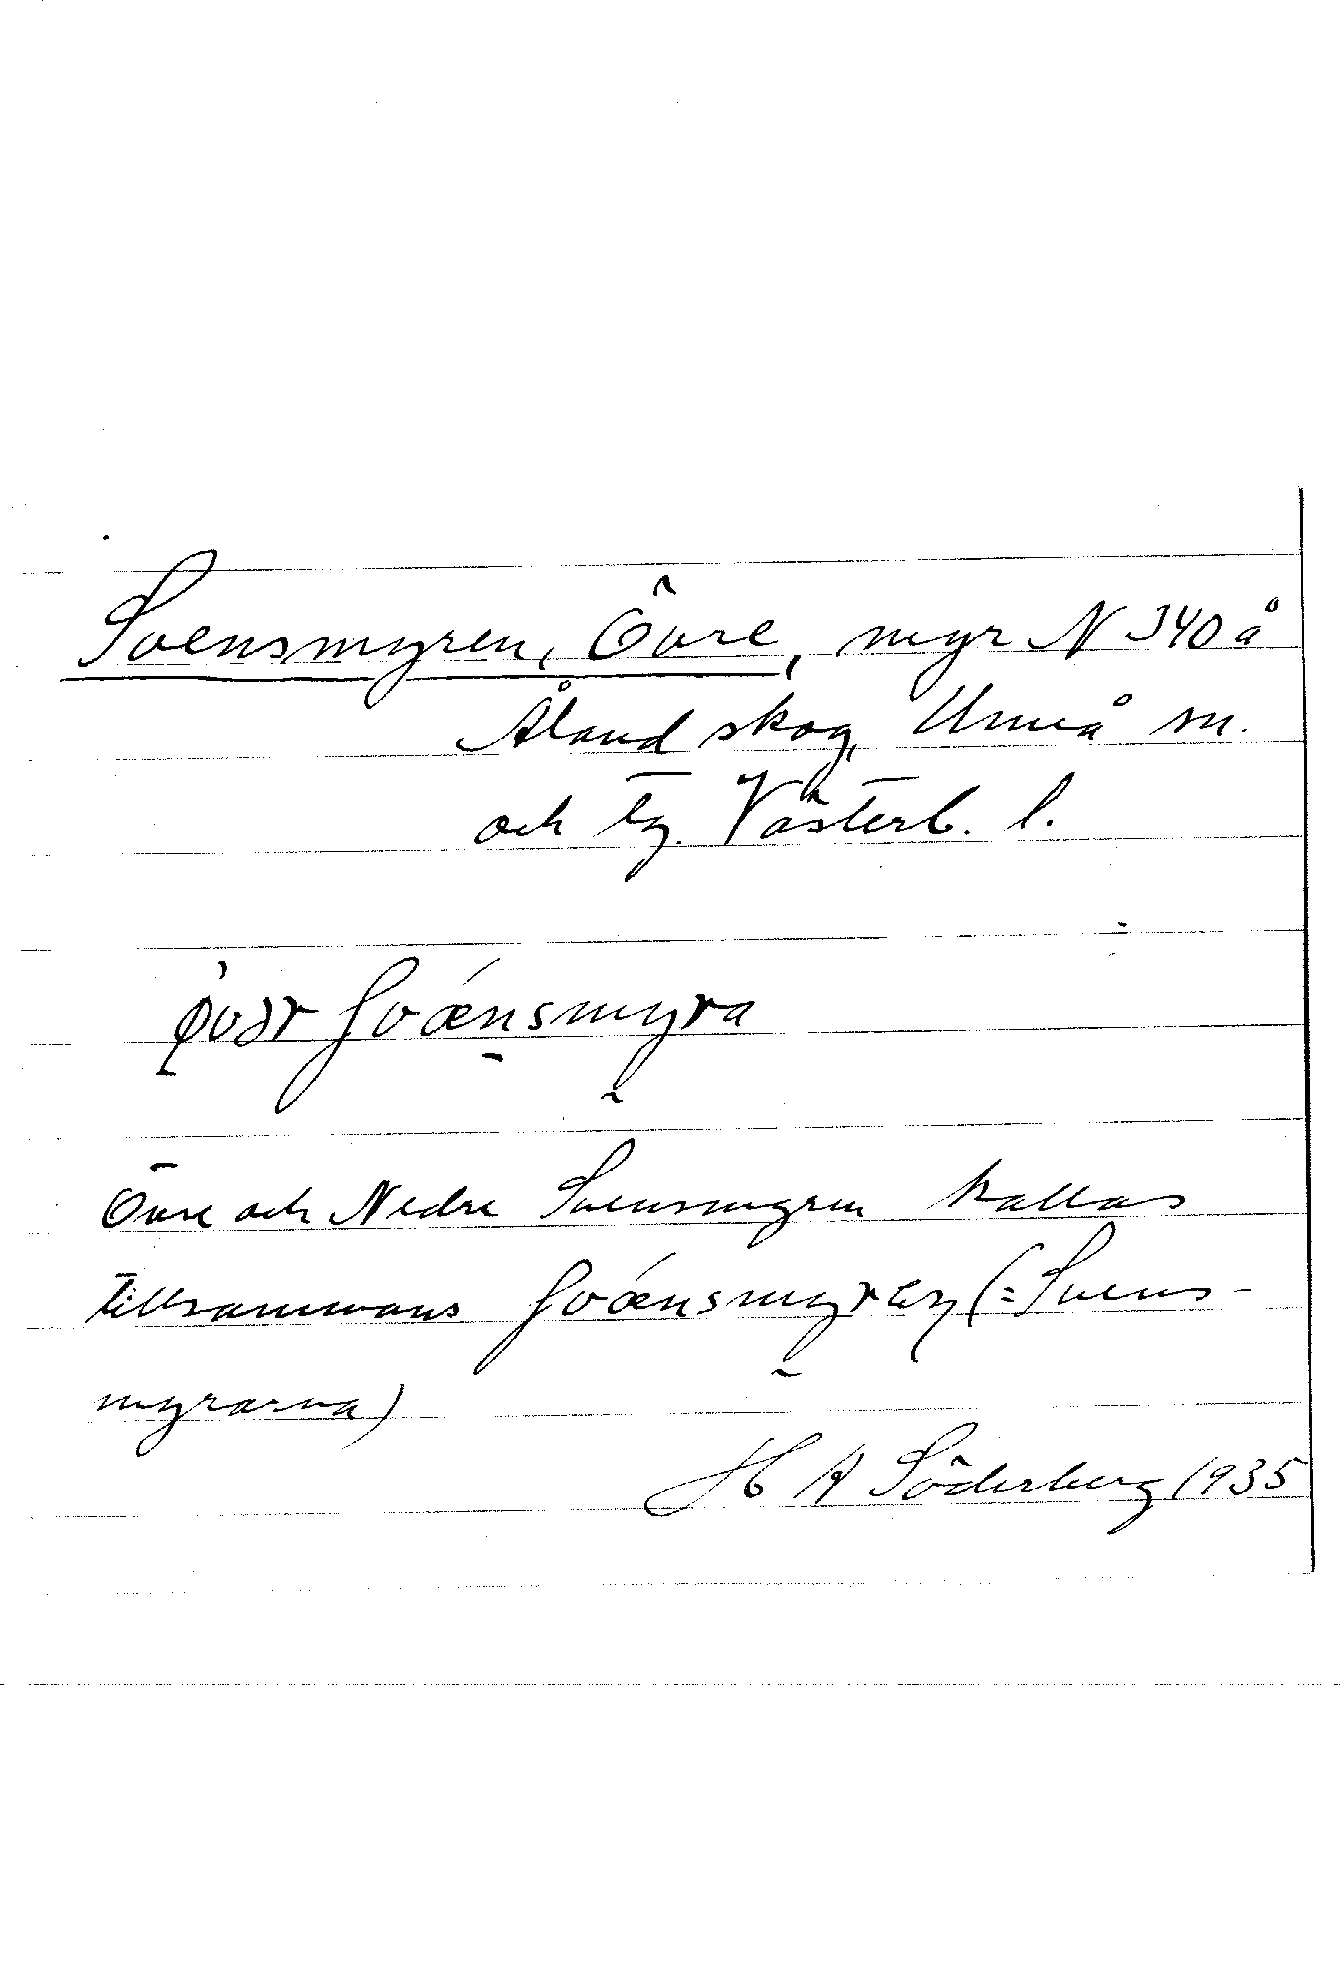 Svensmyren, Övre, myr N J40 å
Åland skog, Umeå sn.
och tg. Västerb. l.
Övre och Nedre Svensmyren kallas
tillsammans (= Svens-
myrarna)
H A Söderberg 1935